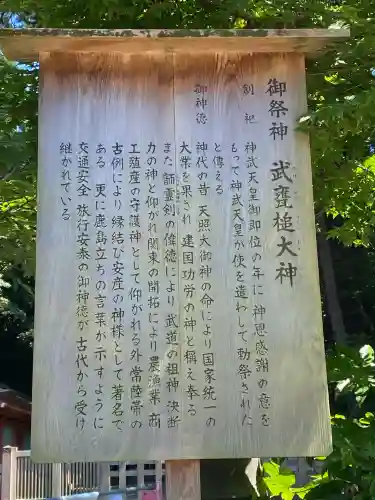 御祭神 武甕槌大神
創祀 神武天皇御即位の年に 神恩感謝の意を
もって 神武天皇が使を遣わして勅祭された
と傳える
御神徳 神代の昔 天照大御神の命により国家統一の
大業を果され 建国功労の神と稱え奉る
また 韴霊剣の偉徳により 武道の祖神 決断
力の神と仰がれ関東の開拓により 農漁業 商
工殖産の守護神として仰がれる外常陸帯の
古例により縁結び安産の神様として著名で
ある 更に鹿島立ちの言葉が示すように
交通安全 旅行安泰の御神徳が古代から受け
継がれている